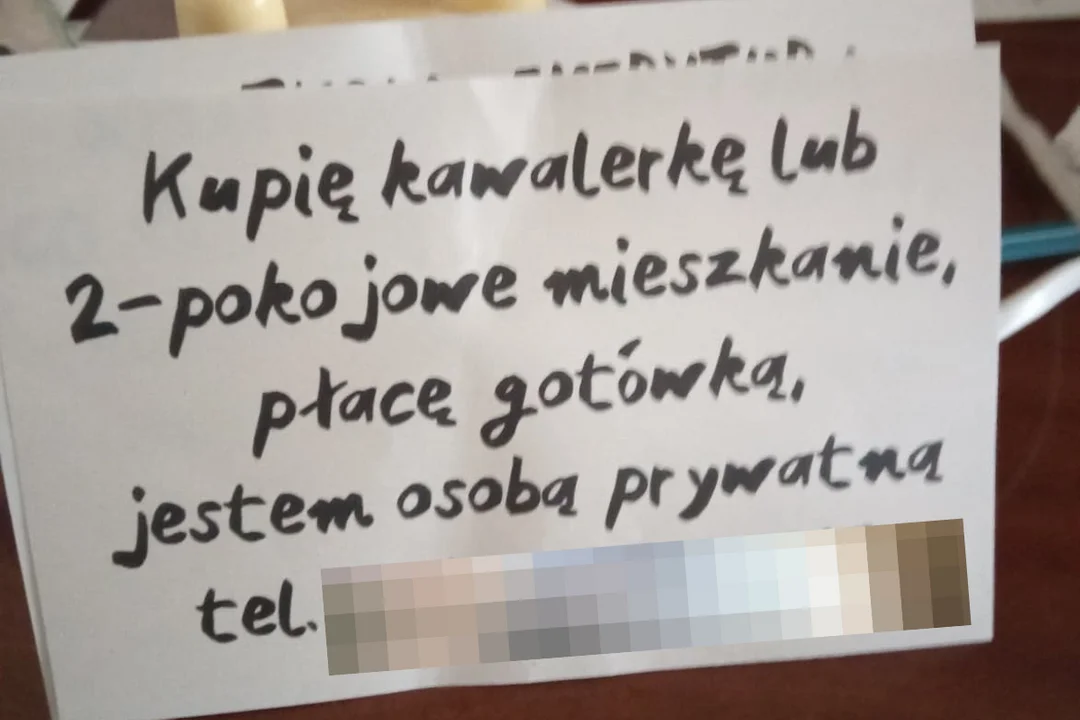 Kupię kawalerkę lub
2-pokojowe mieszkanie,
płacę gotówką,
jestem osobą prywatną
tel.